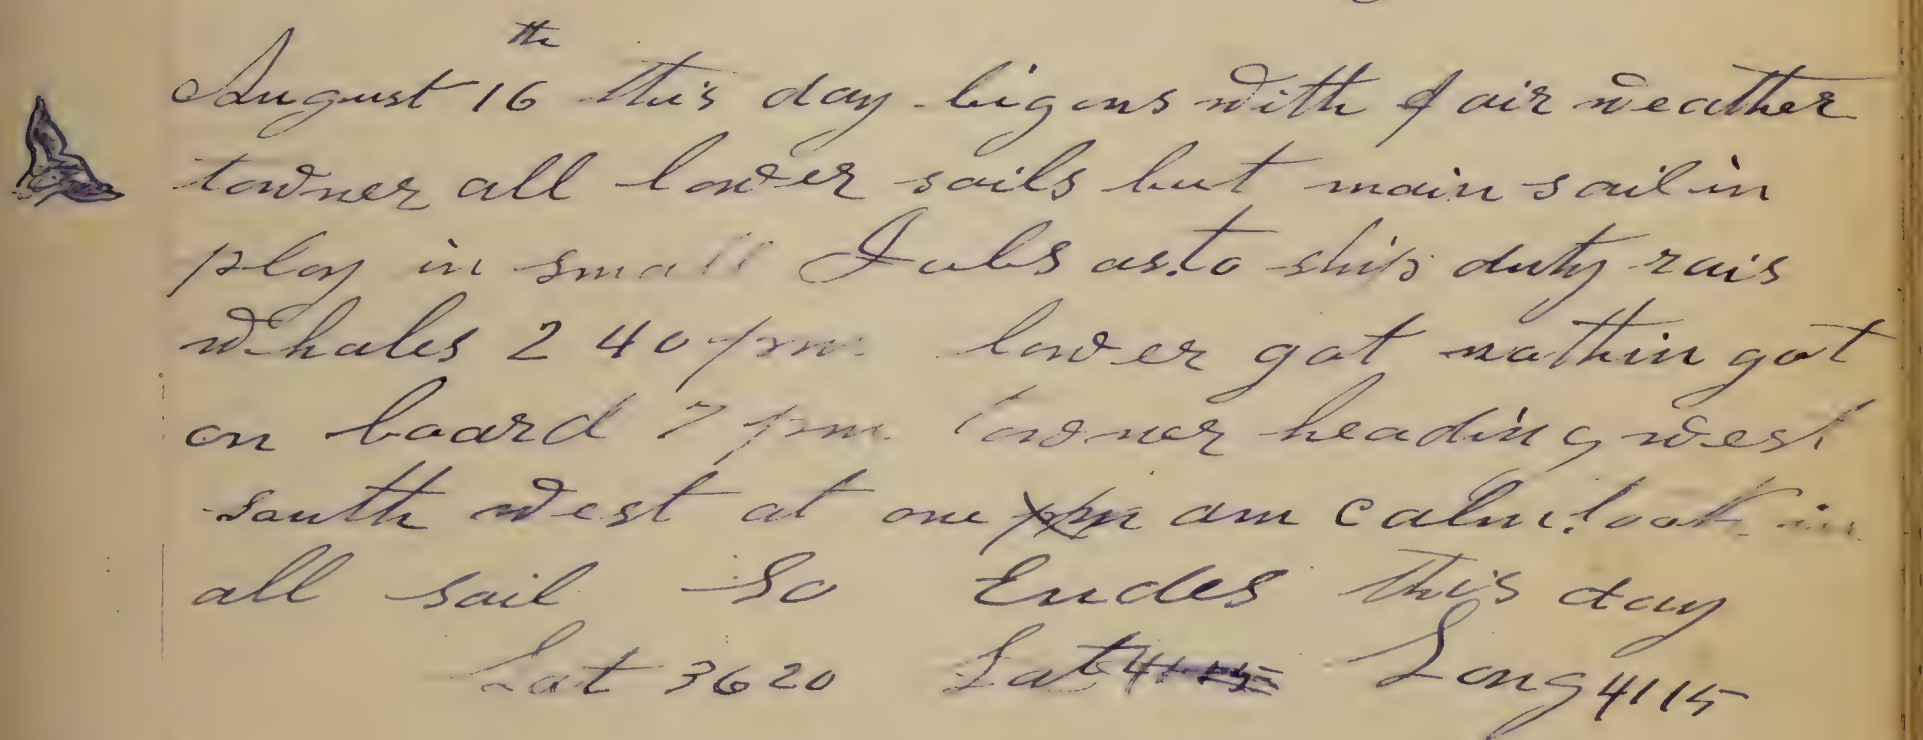 August 16th this day begens with fair weather
towner all lower sails but main sail in
ploy in small Jubs as to ship duty rais
whales 2 40 pm lower got nothin got
on board 7 pm towner heading west
south west at one pm am calm took in
all sail So Endes this day
Lat 3620 Lat 4115 Long 4115